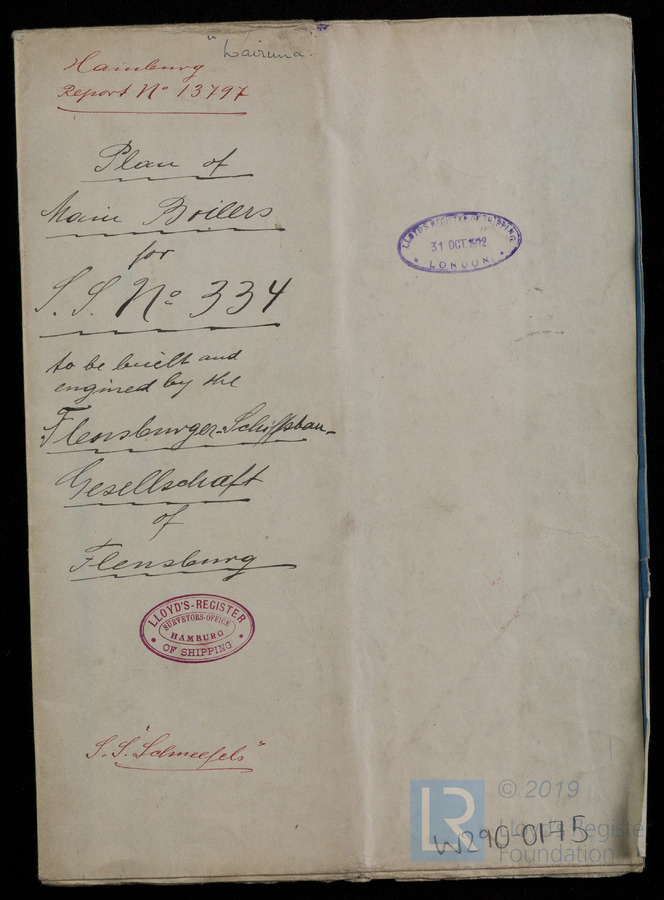 "Lairuna".
Hamburg
Report No 13797
Plan of
Main Boilers
for
S.S. No 334
to be built and
engined by the
Flensburger-Schiffsbau-
Gesellschaft
of
Flensburg
LLOYD'S-REGISTER
SURVEYORS-OFFICE
HAMBURG
OF SHIPPING
S.S. "Schneefels"
LLOYD'S REGISTER OF SHIPPING
31 OCT. 1912
LONDON
LR
© 2019
Lloyd's Register
Foundation
W290-0175